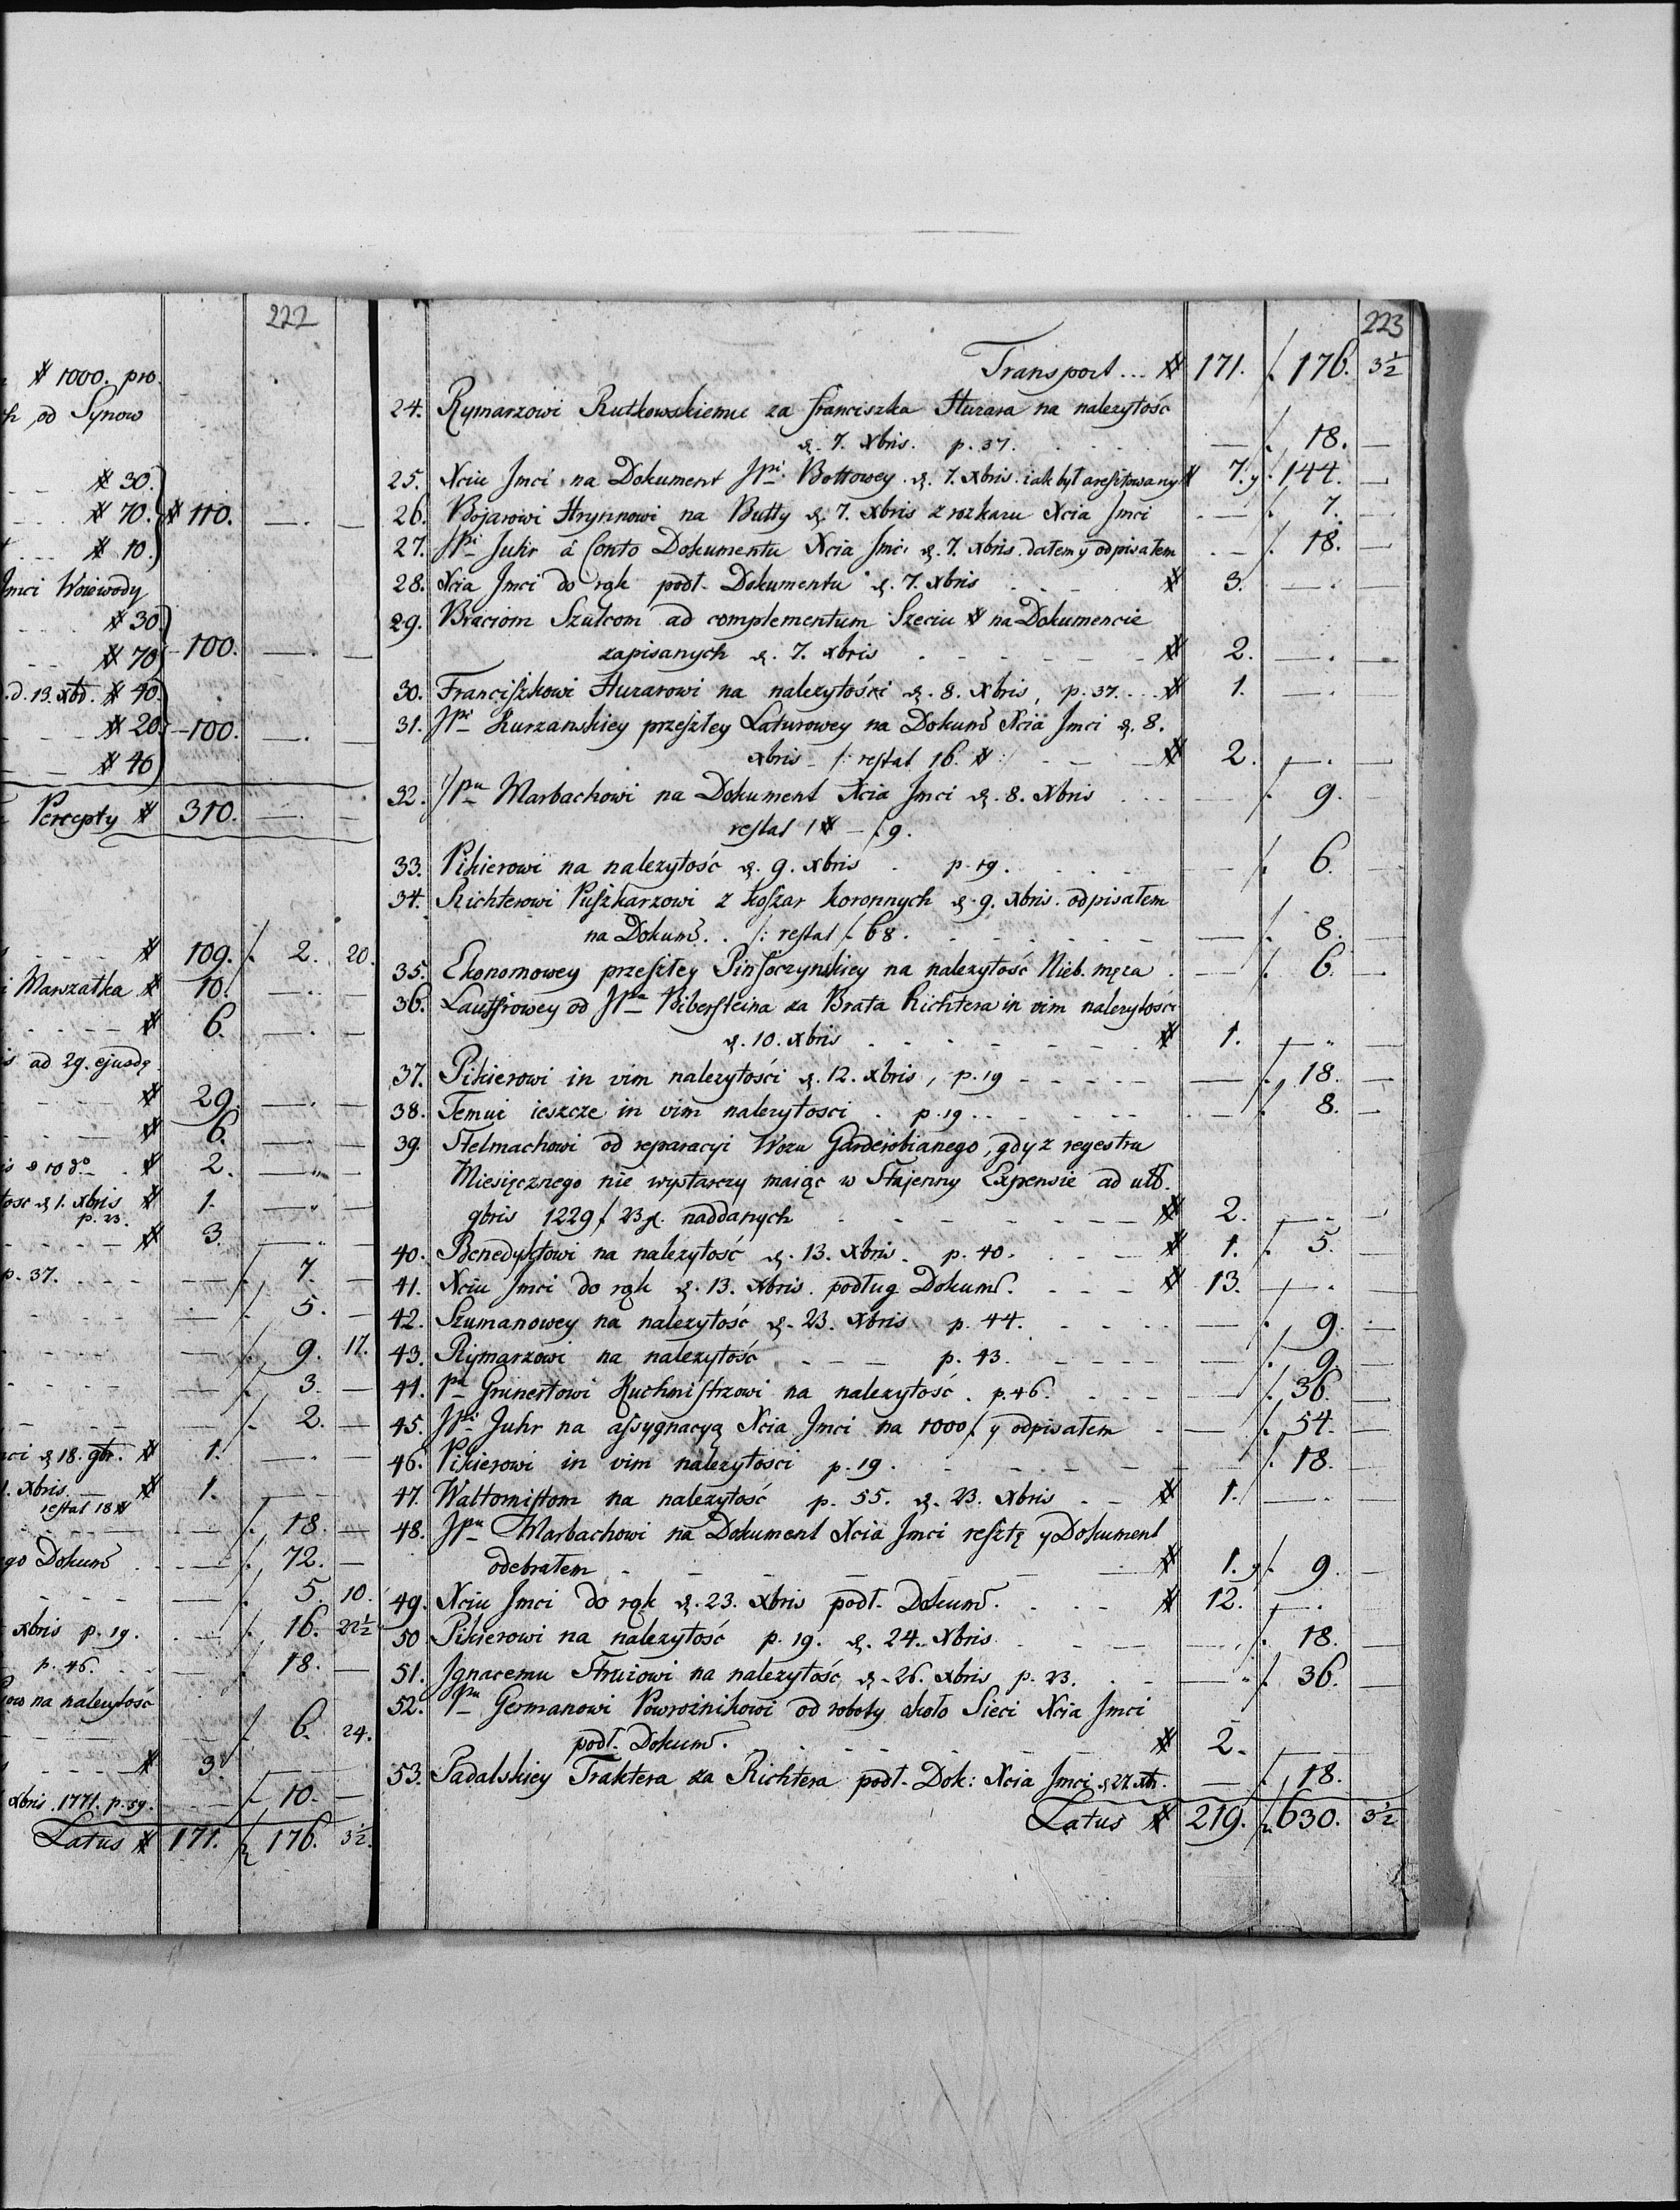 222
# 1000. pro
od Synow
# 30.
# 70. # 110. —. —
# 10.
Jmci Woiewody
# 30
# 70 100. —. —
d. 13. xbr. # 40.
# 20. 100. —. —
# 40
Percepty # 310. —. —
# 109. f. 2. 20.
Marszałka # 10. —. —
# 6. —. —
ad 29. ejusdę
# 29. —. —
# 6. —. —
# 2. —. —
d 1. xbris # 1. —. —
p. 23.
# 3. —. —
p. 37. — f. 7. —
— f. 5. —
— f. 9. 17.
— f. 3. —
— f. 2. —
d 18. gbr. # 1. —. —
1. xbris. — # 1. — —
restat 18 #
— f. 18. —
go Dokum — f. 72. —
— f. 5. 10.
xbris p. 19. — f. 16. 22½
p. 46. — f. 18. —
na należytość
f. 6. 24.
# 3. — —
xbris. 1771. p. 59. — f. 10. —
Latus # 171. f. 176. 3½.
223
Transport... # 171. f. 176. 3½
24. Rymarzowi Rutkowskiemu za Franciszka Huzara na należytość
d. 7. xbris. p. 37. — f. 18. —
25. Xciu Jmci na Dokument JPi Bottowey. d. 7. xbris. iak był aresztowany # 7. y f. 144. —
26. Bojarowi Hrynnowi na Butty d. 7. xbris z rozkazu Xcia Jmci — f. 7. —
27. JPi Juhr à Conto Dokumentu Xcia Jmci d. 7. xbris. dałem y odpisałem — f. 18. —
28. Xcia Jmci do rąk podł. Dokumentu d. 7. xbris # 3. — —
29. Braciom Szulcom ad complementum Sześciu # na Dokumencie
zapisanych d. 7. xbris # 2. —. —
30. Franciszkowi Huzarowi na należytości d. 8. xbris, p. 37. # 1. —. —
31. JPi Kurzanskiey przeszłey Laturowey na Dokum Xcia Jmci d. 8.
xbris - /: restat 16. # :/ # 2. —. —
32. JPu Marbachowi na Dokument Xcia Jmci d. 8. xbris — f. 9.
restat 1 # — f. 9.
33. Pikierowi na należytość d. 9. xbris p. 19. — f. 6. —
34. Richterowi Puszkarzowi z koszar koronnych d. 9. xbris. odpisałem
na Dokum. /: restat f. 68. — f. 8. —
35. Ekonomowey przeszłey Pinsoczynskiey na należytość Nieb. męża — f. 6. —
36. od JPa Bibersteina za Brata Richtera in vim należytości
d. 10. xbris # 1. —. —
37. Pikierowi in vim należytości d. 12. xbris, p. 19 — f. 18. —
38. Temuż ieszcze in vim należytosci p. 19. — f. 8. —
39. Stelmachowi od reparacyi Wozu Garderobianego, gdy z regestru
Miesięcznego nie wystarczy maiąc w Stajenny Expensie ad ult.
gbris 1229 f. 23 g. naddanych # 2. —. —
40. Benedyktowi na należytość d. 13. xbris. p. 40. # 1. f. 5. —
41. Xciu Jmci do rąk d. 13. xbris. podług Dokum. # 13. —. —
42. Szumanowey na należytość d. 23. xbris p. 44. — f. 9. —
43. Rymarzowi na należytość p. 43. — f. 9. —
44. Pu Grunertowi Kuchmistrzowi na należytość. p. 46. — f. 36. —
45. JPi Juhr na assygnacyą Xcia Jmci na 1000 f. y odpisałem — f. 54. —
46. Pikierowi in vim należytosci p. 19. — f. 18. —
47. Waltornistom na należytość p. 55. d. 23. xbris # 1. —. —
48. JPu Marbachowi na Dokument Xcia Jmci resztę y Dokument
odebrałem # 1. y f. 9. —
49. Xciu Jmci do rąk d. 23. xbris podł. Dokum. # 12. —.
50 Pikierowi na należytość p. 19. d. 24. xbris — f. 18. —
51. Ignacemu Strużowi na należytość d. 26. xbris p. 23. — f. 36. —
52. Pu Germanowi Powroźnikowi od roboty około Sieci Xcia Jmci
podł. Dokum. # 2. — —
53. Padalskiey Traktera za Richtera podł. Dok: Xcia Jmci d 27. xbr. — f. 18. —
Latus # 219. f. 630. 3½